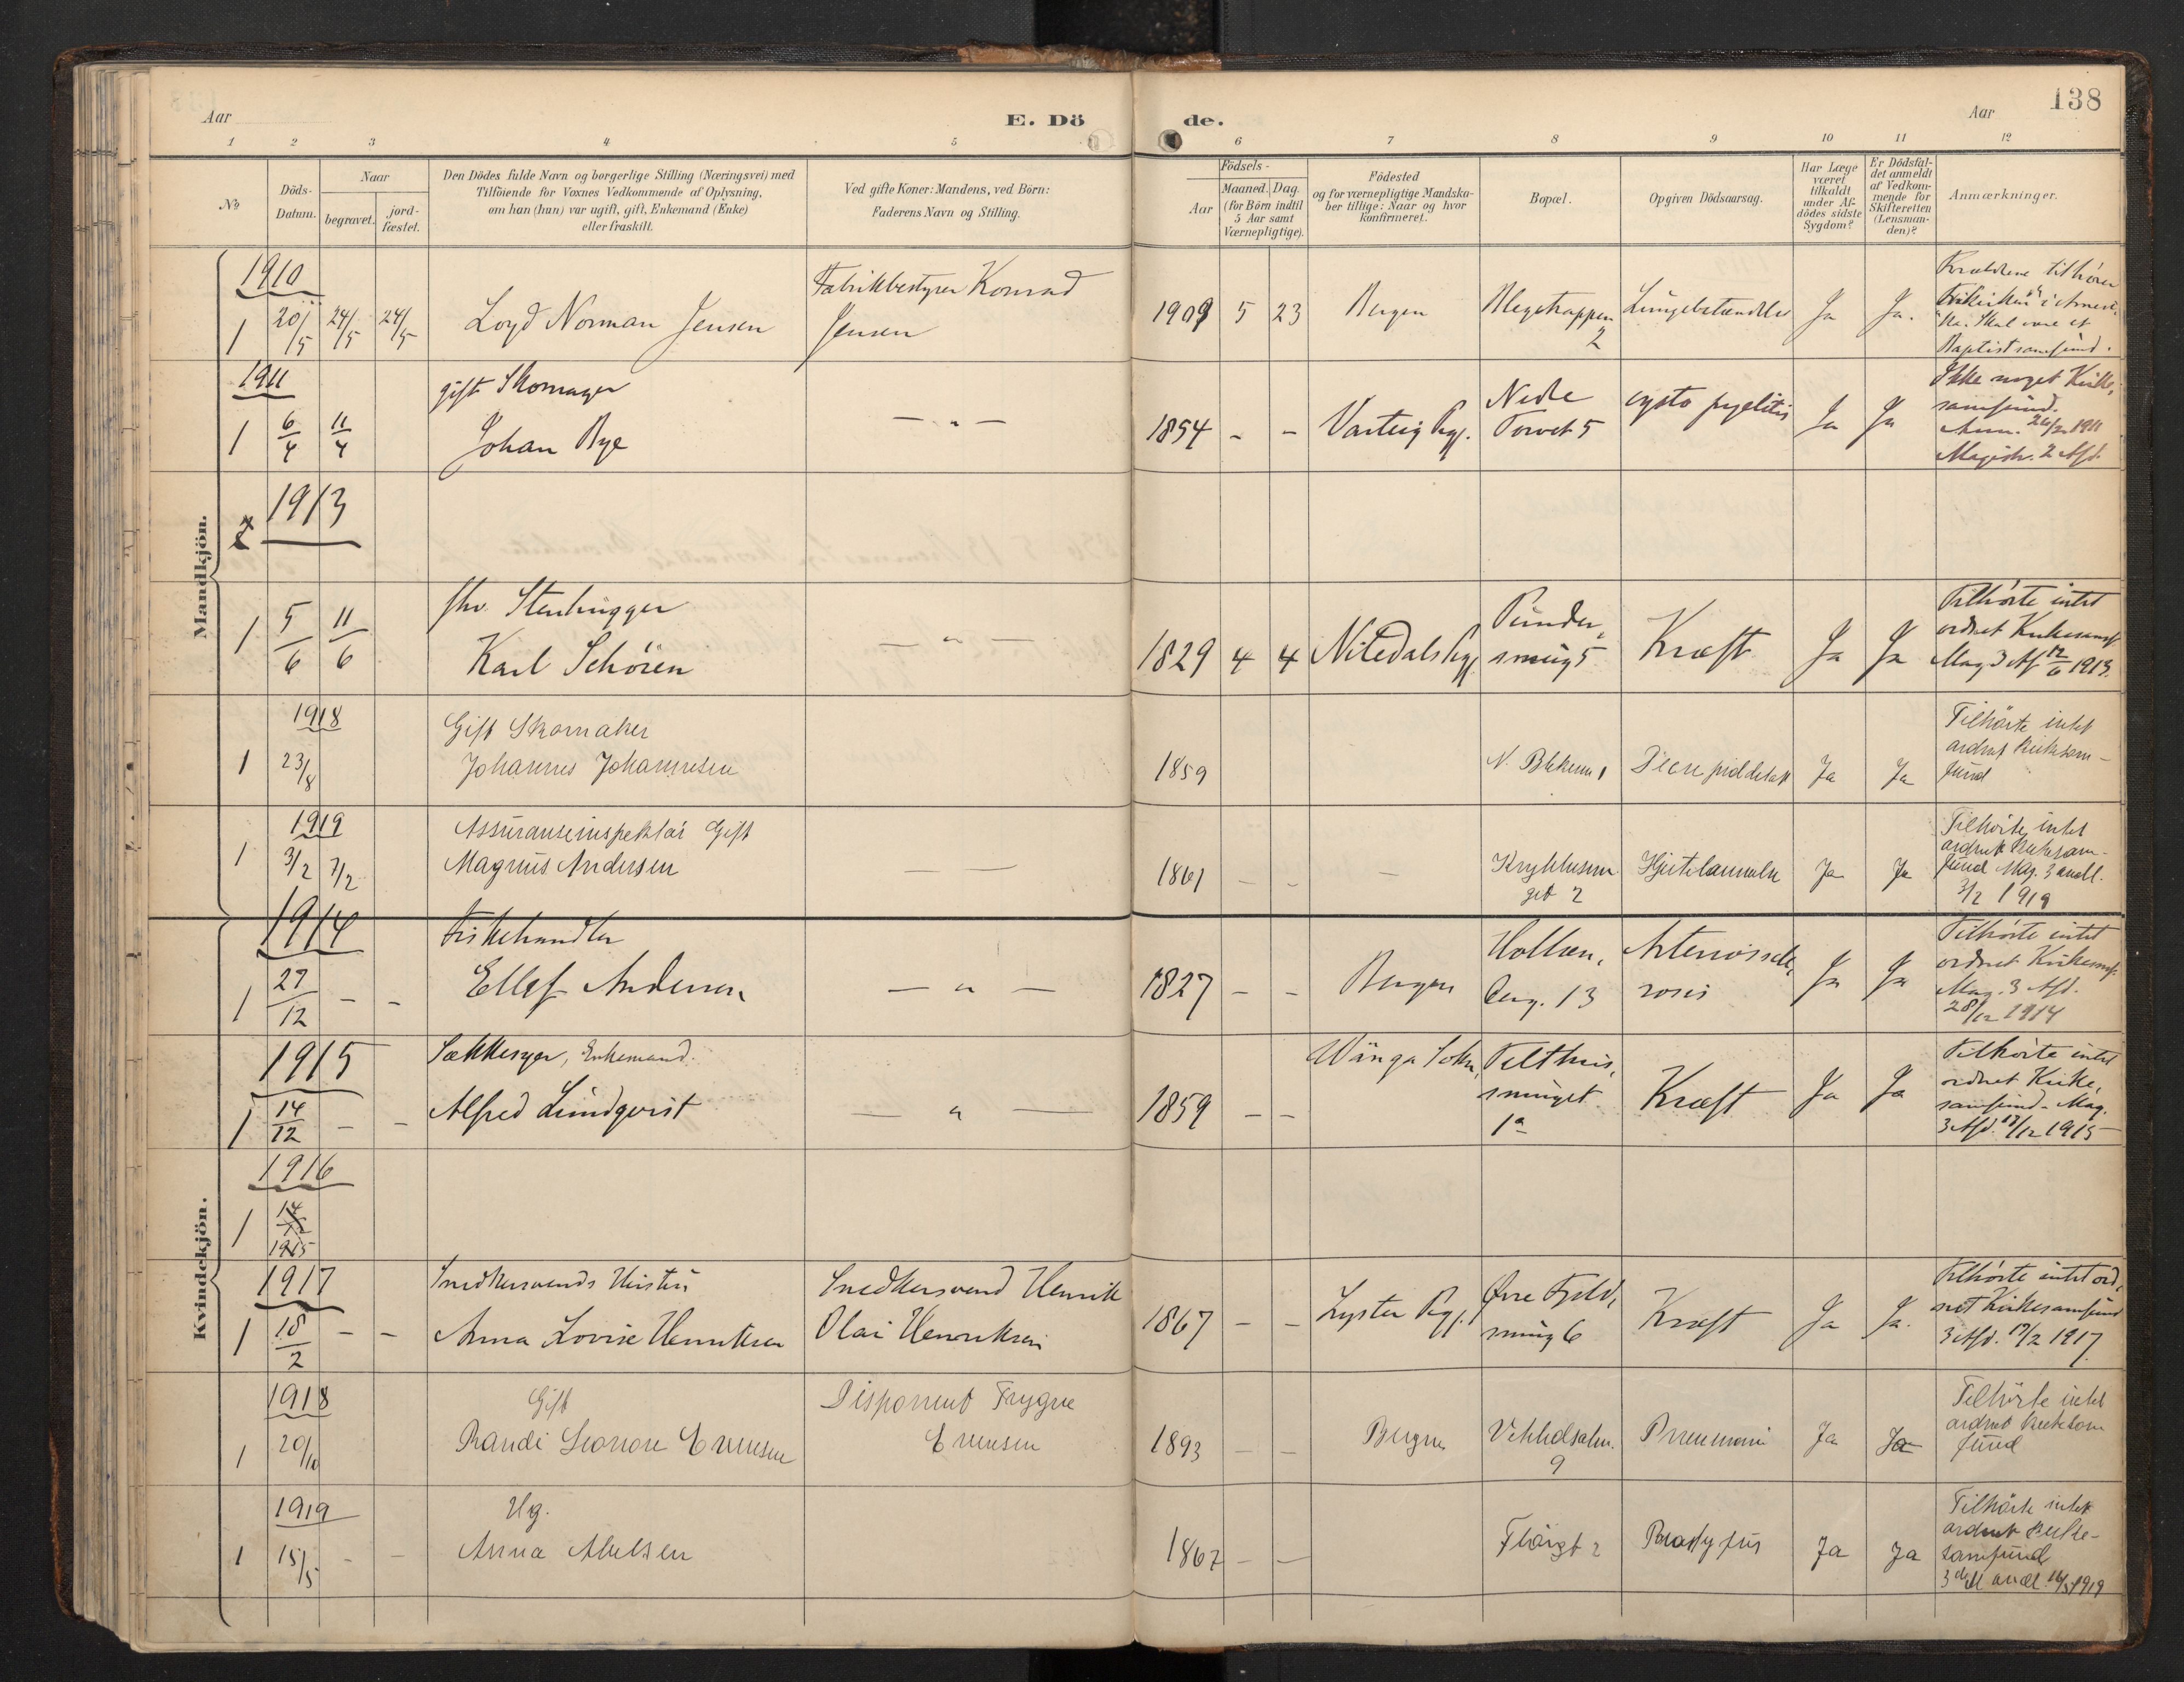 138
Aar
E. Dö de.
Aar
1 2 3 4 5 6 7 8 9 10 11 12
No
Döds-Datum.
Naar
begravet.
jord-fæstet.
Den Dödes fulde Navn og borgerlige Stilling (Næringsvei) med
Tilföiende for Voxnes Vedkommende af Oplysning,
om han (hun) var ugift, gift, Enkemand (Enke)
eller fraskilt.
Ved gifte Koner: Mandens, ved Börn:
Faderens Navn og Stilling.
Födsels-
Aar
Maaned. Dag.
(for Börn indtil
5 Aar samt
Værnepligtige).
Födested
og for værnepligtige Mandska-
ber tillige: Naar og hvor
konfirmeret.
Bopæl.
Opgiven Dödsaarsag.
Har Læge
været
tilkaldt
under Af-
dödes sidste
Sygdom?
Er Dödsfal-
det anmeldt
af Vedkom-
mende for
Skifteretten
(Lensman-
den)?
Anmærkninger.
Mandkjön.
1910
1 20/5 24/5 24/5
Loyd Norman Jensen
Fabrikbestyrer Konrad
Jensen
1909 5 23 Bergen
Blegetrappen
2
Lungebetændelse Ja Ja.
Forældrene tilhörer
Frikirken i Ameri-
ka. Skal være et
Baptistsamfund.
1911
1 6/4 11/4
gift Skomager
Johan Bye
— " —
1854 - - Varteig Pgj.
Nedre
Torvet 5
cysto pyelitis Ja Ja
Ikke noget Kirke,
samfund.
Anm. 26/2 1911
Magistr. 2 Afd.
1913
1 5/6 11/6
fhv. Stenhugger
Karl Schöien
— " —
1829 4 4 Nitedals Pgj.
Pinder,
smug 5
Kræft Ja Ja
Tilhörte intet
ordnet Kirkesamf.
Mag. 3 Af 12/6 1913.
1918
1 23/8
Gift Skomaker
Johannes Johannesen
1859
N. Blekevei 1
Ja Ja
Tilhörte intet
ordnet Kirkesam-
fund
1919
1 3/2 7/2
Assuranseinspektör Gift
Magnus Andersen
— —
1861 - - -
get 2
Hjertelammelse Ja Ja
Tilhörte intet
ordnet Kirkesam-
fund Mag. 3 avdl.
3/2 1919
Kvindekjön.
1914
1 27/12 - -
Fiskehandler
Ellef Andersen
— " —
1827 - - Bergen
Hollen,
derg. 13
Arterioscle,
rosis
Ja Ja
Tilhörte intet
ordnet Kirkesamf.
Mag. 3 Afd.
28/12 1914
1915
1 14/12 - -
Sækkesyer, Enkemand.
Alfred Lundqvist
— " —
1859 - -
Wånga Sokn,
Telthus,
smuget
1a
Kræft Ja Ja
Tilhörte intet
ordnet Kirke,
samfund - Mag.
3 Afd. 17/12 1915
1916
1 14/12
1915
1917
1 18/2 - -
Snedkersvends Hustru
Anna Lovise Henriksen
Snedkersvend Henrik
Olai Henriksen
1867 - - Lyster Pgj.
Øvre Fjeld,
smug 6
Kræft Ja Ja.
Tilhörte intet ord,
net Kirkesamfund
3 Afd. 19/2 1917.
1918
1 20/10
Gift
Randi Leonore Evensen
Disponent Trygve
Evensen
1893 - - Bergen
9
Pneumoni Ja Ja
Tilhörte intet
ordnet Kirkesam
fund
1919
1 15/5 - -
Ug.
Anna Abelsen
1867 - -
Ja Ja
Tilhörte intet
ordnet Kirke-
samfund
3d M avdl. 16/5 1919